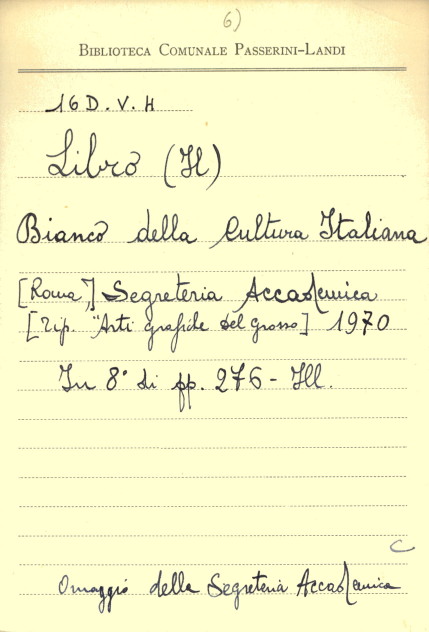 6)
BIBLIOTECA COMUNALE PASSERINI-LANDI
16 D. V. H
Libro (Il)
Bianco della Cultura Italiana
[Roma,] Segreteria Accademica
[Tip. "Arti grafiche del grosso] 1970
In 8° di pp. 276 - Ill.
C
Omaggio della Segreteria Accademica